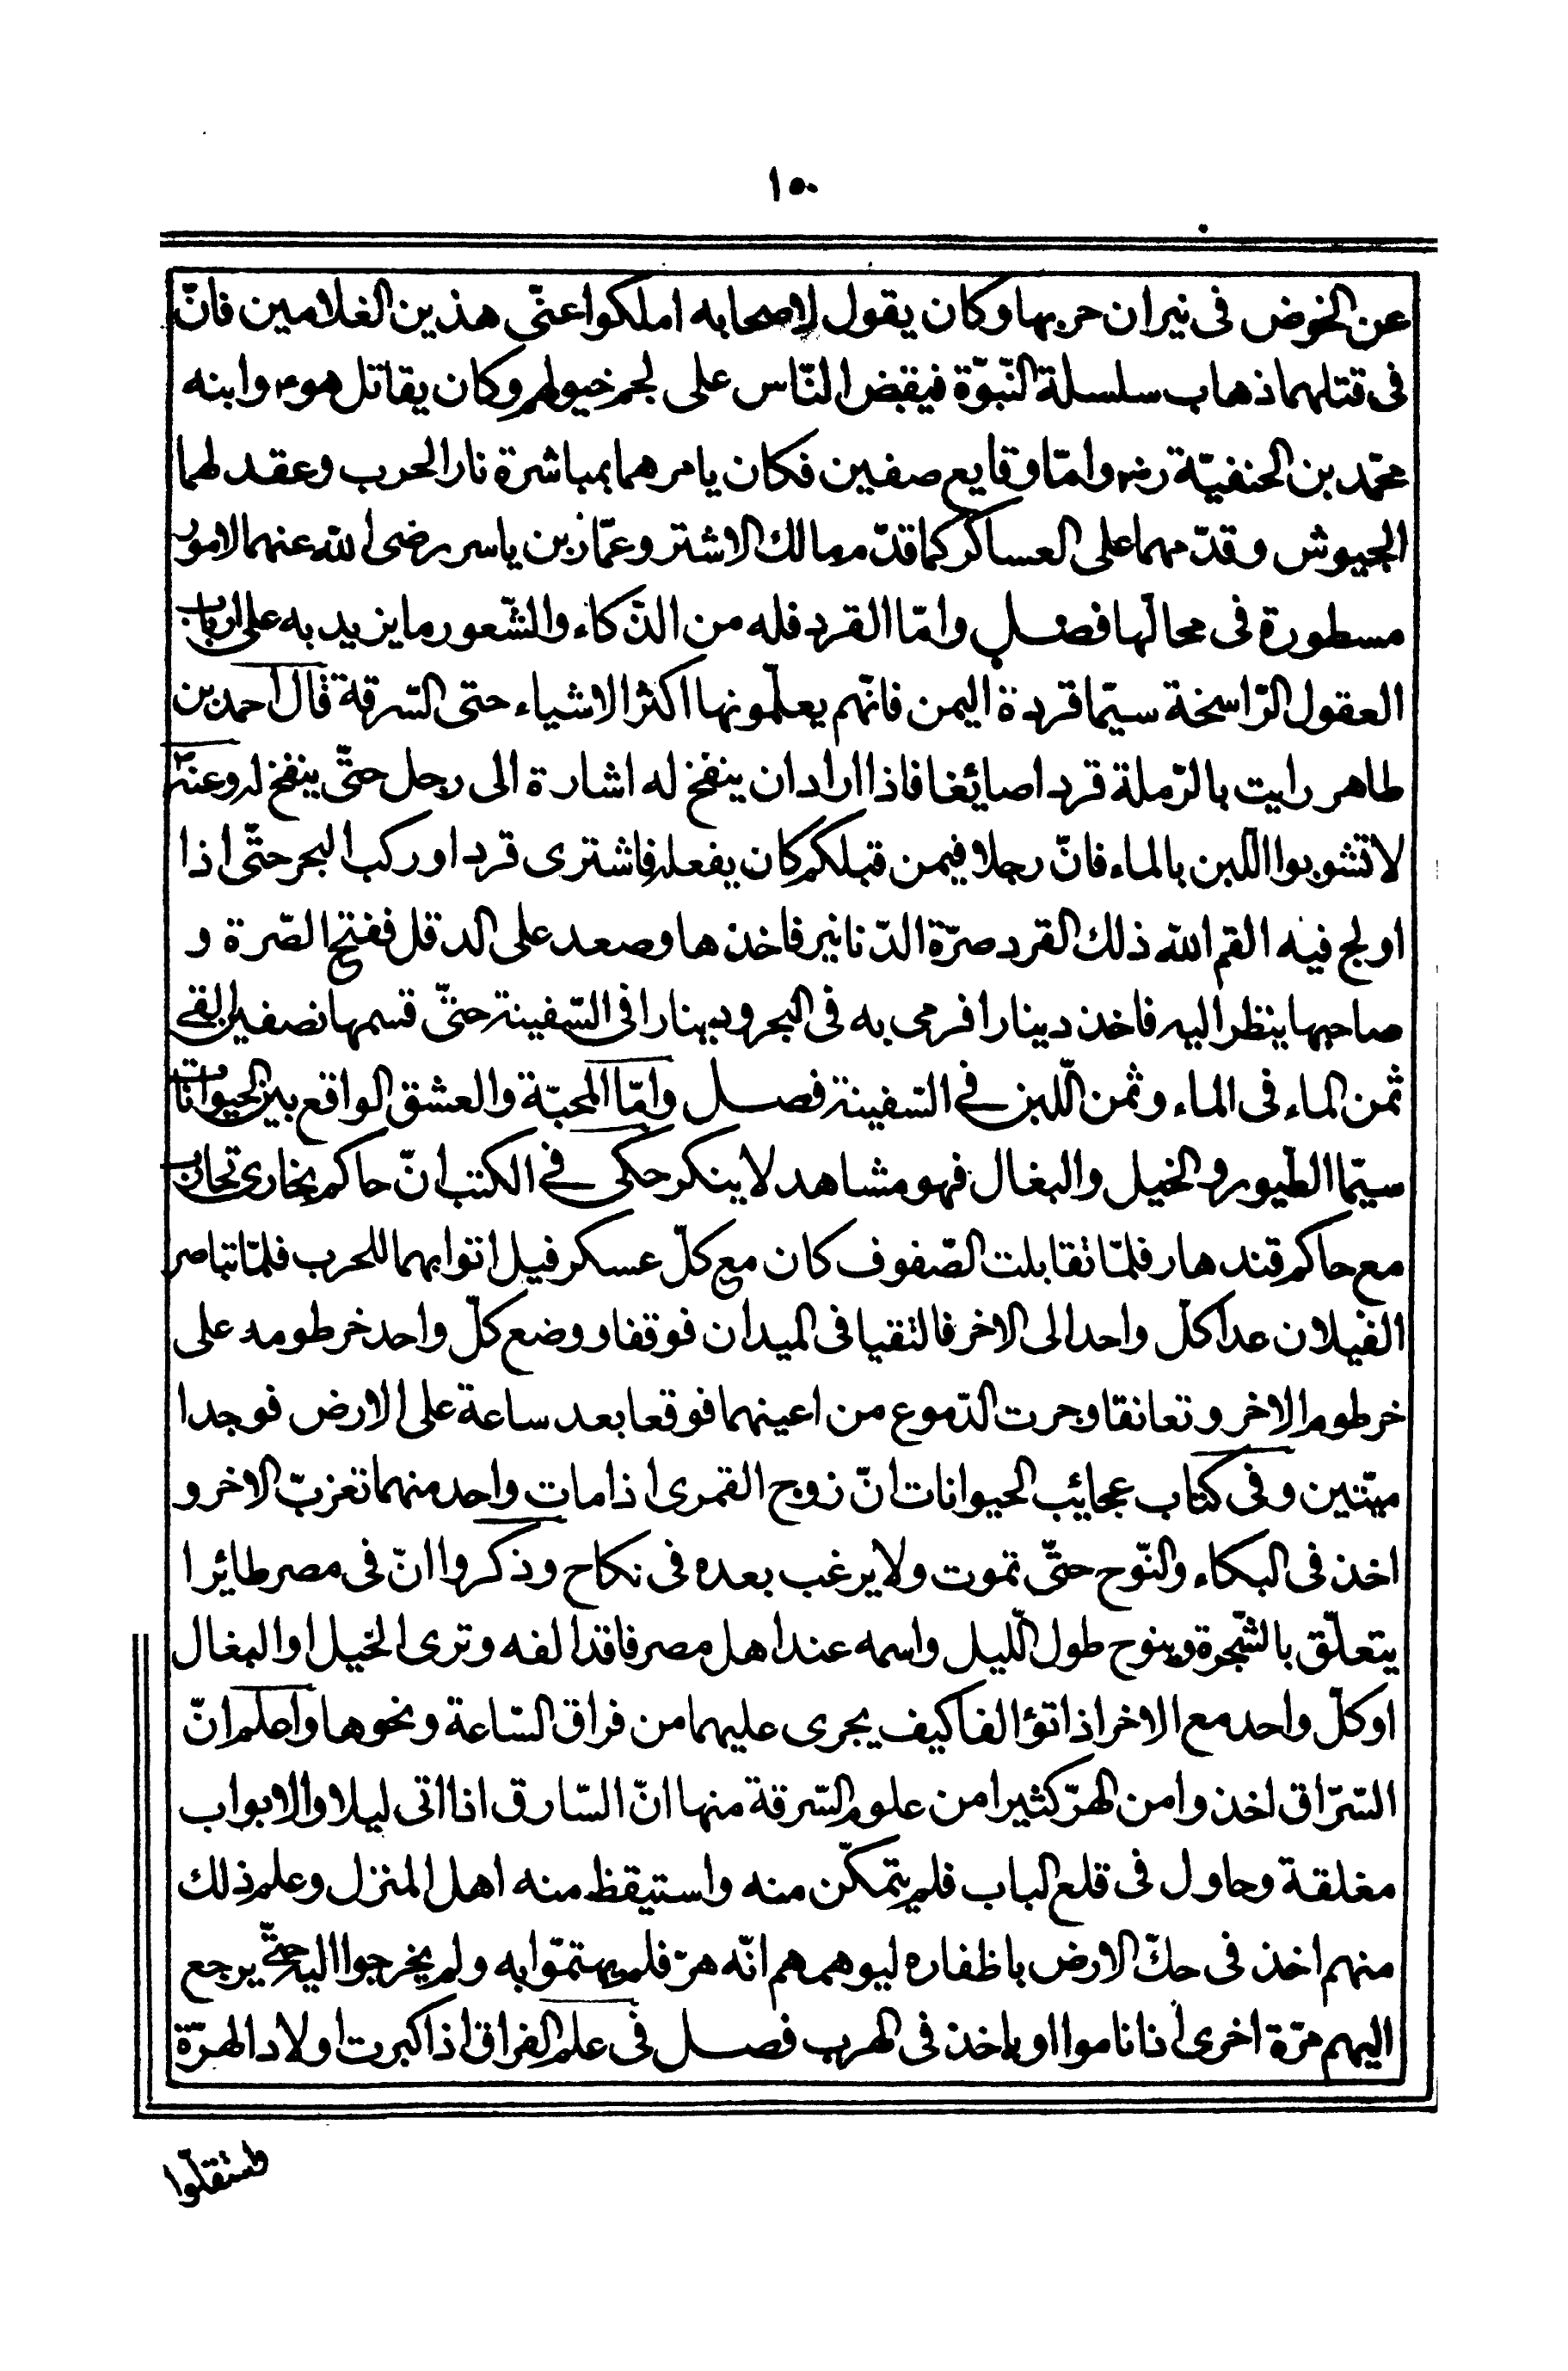 ١٥٠
عن الخوض فى نيران حربها وكان يقول لاصحابه املكوا عنّى هذين الغلامين فانّ
فى قتلهما ذهاب سلسلة النّبوّة فيقبض النّاس على لجم خيولهم وكان يقاتل هوء وابنه
محمّد بن الحنفيّة رضه وامّا وقايع صفين فكان يامرهما بمباشرة نار الحرب وعقد لهما
الجيوش وقدّمهما على العساكر كما قدّم مالك الاشتر وعمّار بن ياسر رضى الله عنهما الامور
مسطورة فى محالّها فصل وامّا القرد فله من الذّكاء والشّعور ما يزيد به على ارباب
العقول الرّاسخة سيّما قردة اليمن فانّهم يعلّمونها اكثر الاشياء حتى السّرقة قال احمد بن
طاهر رايت بالرّملة قردا صائغا فاذا اراد ان ينفخ له اشارة الى رجل حتّى ينفخ له وعنه
لا تشوبوا اللّبن بالماء فانّ رجلا فيمن قبلكم كان يفعله فاشترى قردا وركب البحر حتّى اذا
اولج فيه القم الله ذلك القرد صرّة الدّنانير فاخذها وصعد على الدقل ففتح الصّرة و
صاحبها ينظر اليه فاخذ دينارا فرمى به فى البحر ودينارا فى السّفينة حتّى قسمها نصفين القى
ثمن الماء فى الماء وثمن اللّبن فى السّفينة فصل وامّا المحبّة والعشق الواقع بين الحيوانات
سيّما الطّيور والخيل والبغال فهو مشاهد لا ينكر حكى فى الكتب انّ حاكم بخارى تحارب
مع حاكم قندهار فلمّا تقابلت الصّفوف كان مع كلّ عسكر فيل اتوا بهما للحرب فلمّا تباصر
الفيلان عدا كلّ واحد الى الاخر فالتقيا فى الميدان فوقفا ووضع كلّ واحد خرطومه على
خرطوم الاخر وتعانقا وجرت الدّموع من اعينهما فوقعا بعد ساعة على الارض فوجدا
ميّتين وفى كتاب عجائب الحيوانات انّ زوج القمرى اذا مات واحد منهما تعزبّ الاخر و
اخذ فى البكاء والنّوح حتّى تموت ولا يرغب بعده فى نكاح وذكروا انّ فى مصر طائرا
يتعلّق بالشّجرة وينوح طول اللّيل واسمه عند اهل مصر فاقد الفه وترى الخيل او البغال
او كلّ واحد مع الاخر اذا تؤالفا كيف يجرى عليهما من فراق السّاعة ونحوها واعلم انّ
السّرّاق اخذوا من الهرّ كثيرا من علوم السّرقة منها انّ السّارق اذا اتى ليلا والابواب
مغلقة وحاول فى قلع الباب فلم يتمكّن منه واستيقظ منه اهل المنزل وعلم ذلك
منهم اخذ فى حكّ الارض باظفاره ليوهمهم انّه هرّ فلم يهتمّوا به ولم يخرجوا اليه حتّى يرجع
اليهم مرّة اخرى اذا ناموا او ياخذ فى الهرب فصل فى علم الفراق اذا كبرت اولاد الهرّة